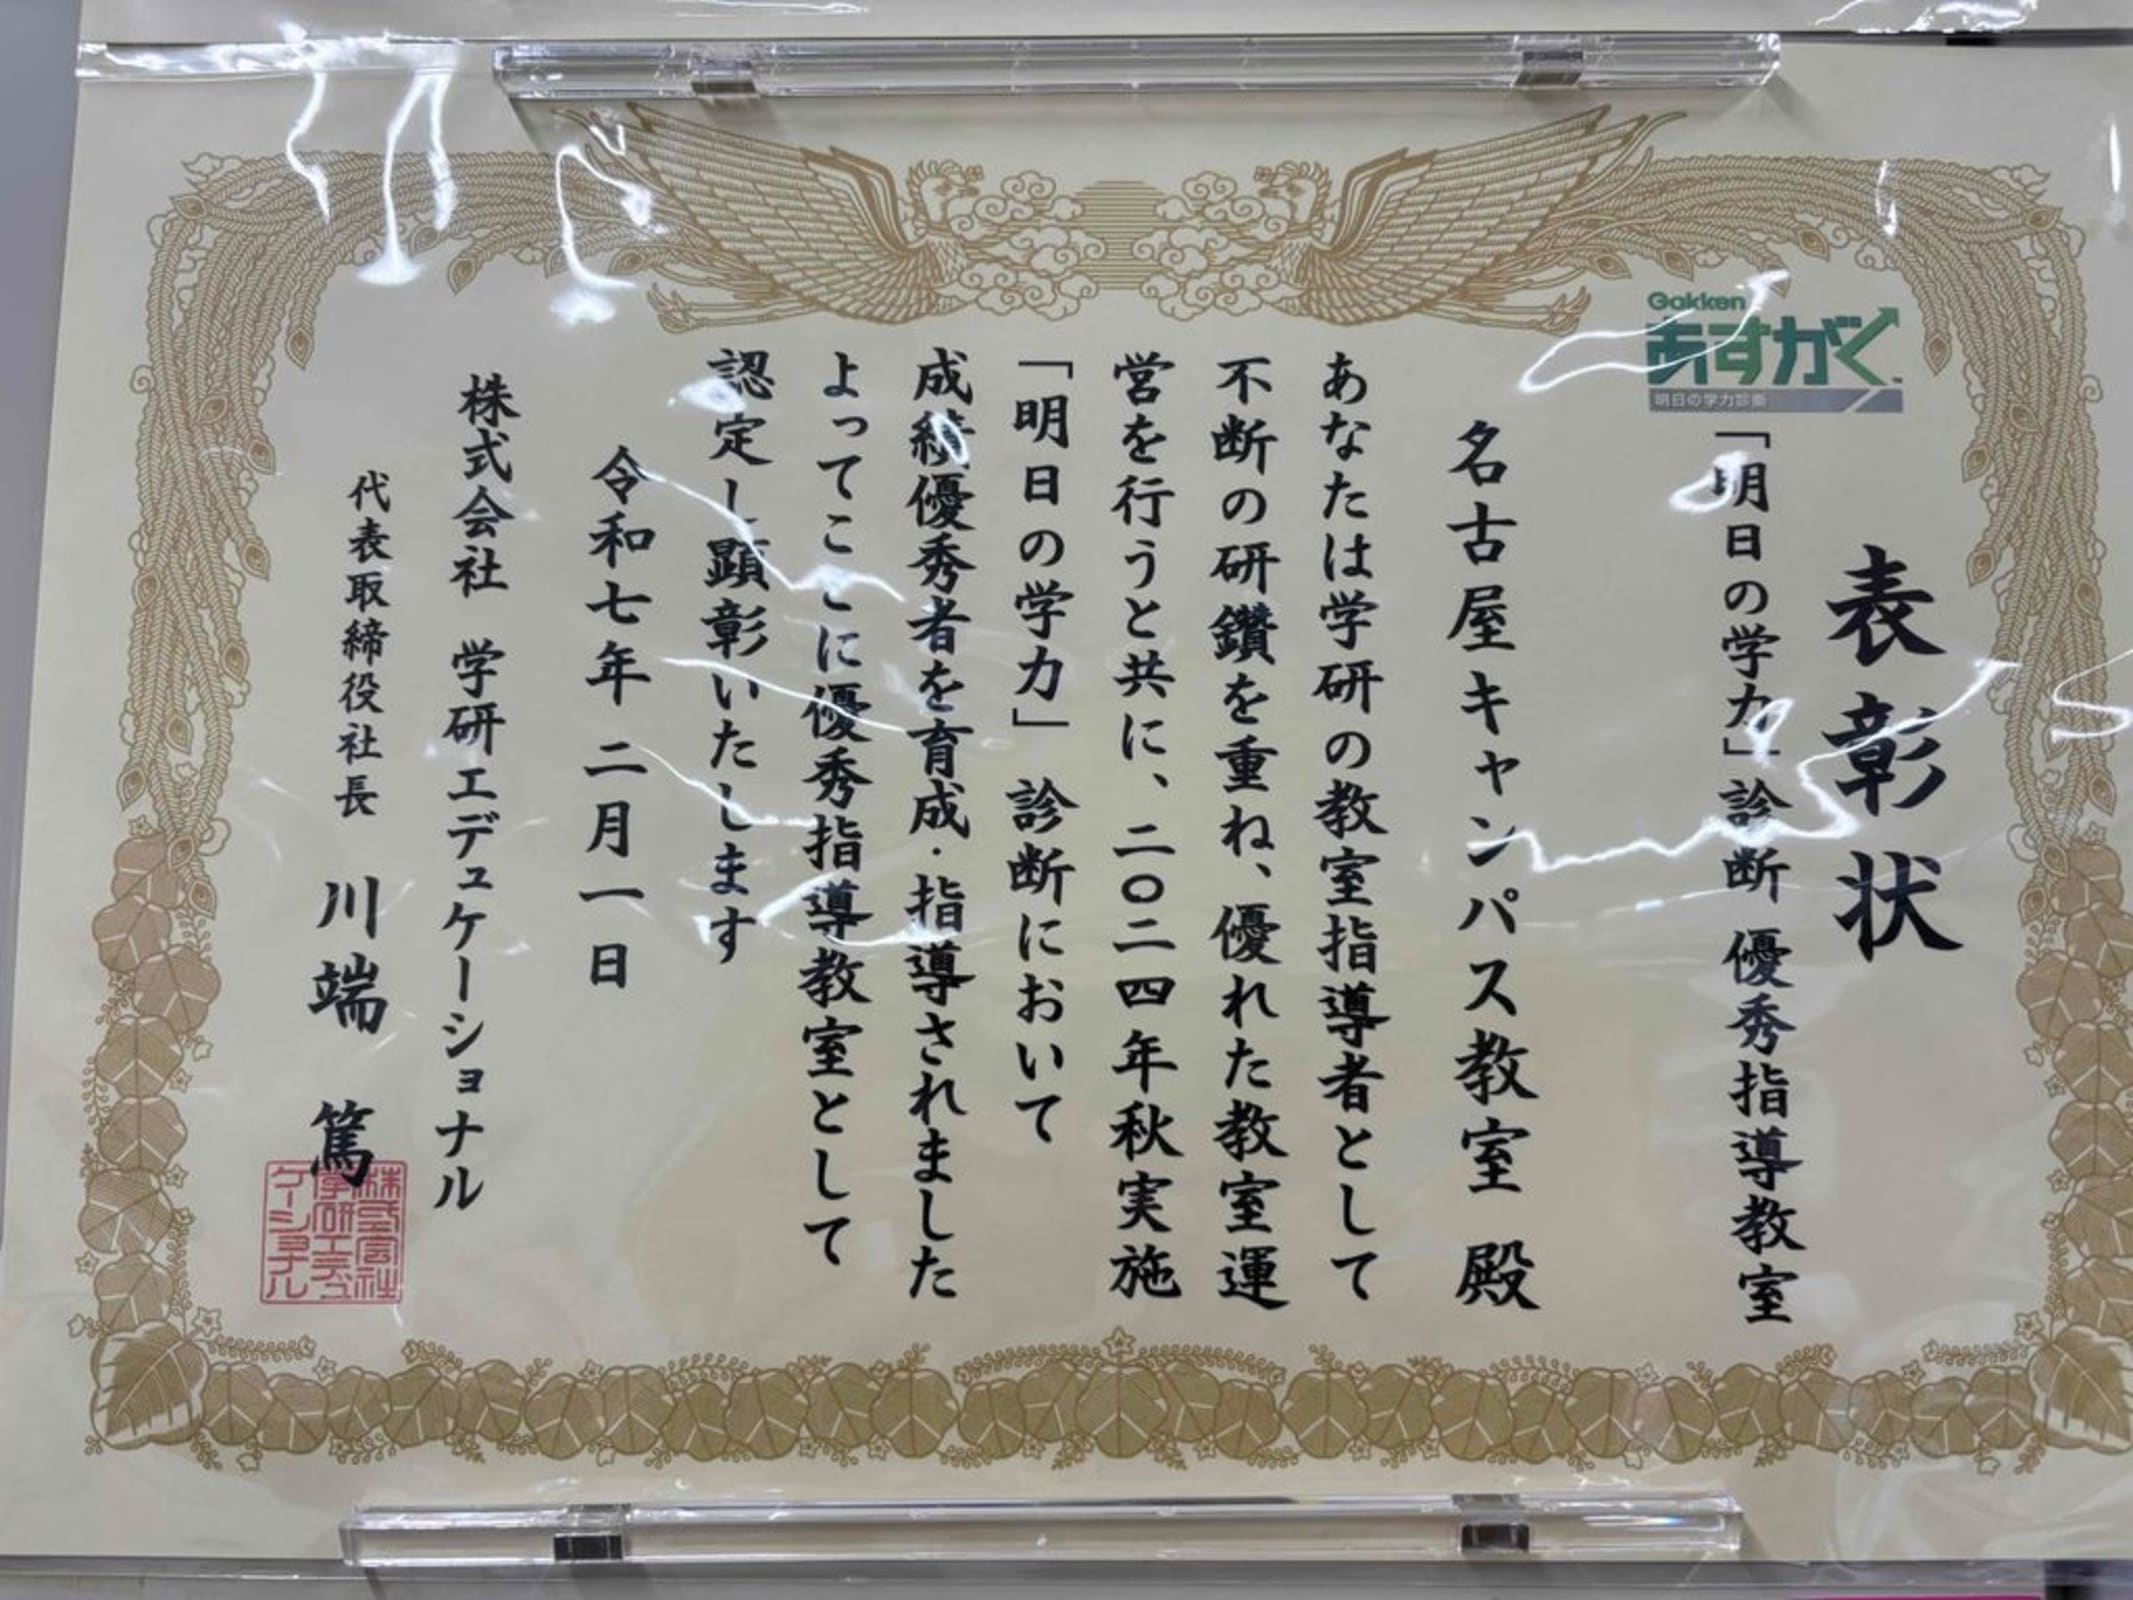 Gakken
あすがく
明日の学力診断
表彰状
「明日の学力」診断 優秀指導教室
名古屋キャンパス教室 殿
あなたは学研の教室指導者として
不断の研鑽を重ね、優れた教室運
営を行うと共に、二〇二四年秋実施
「明日の学力」診断において
成績優秀者を育成・指導されました
よってここに優秀指導教室として
認定し顕彰いたします
令和七年 二月一日
株式会社 学研エデュケーショナル
代表取締役社長 川端 篤
株式会社
学研エデュ
ケーショナル